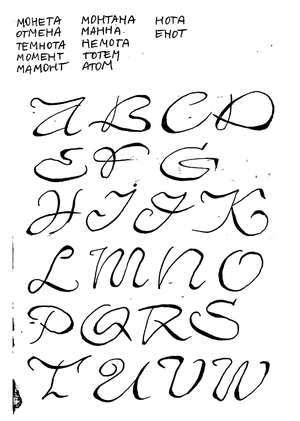 МОНЕТА МОНТАНА НОТА
ОТМЕНА МАННА ЕНОТ
ТЕМНОТА НЕМОТА
МОМЕНТ ТОТЕМ
МАМОНТ АТОМ
A B C D
E F G
H I J K
L M N O
P Q R S
T U V W